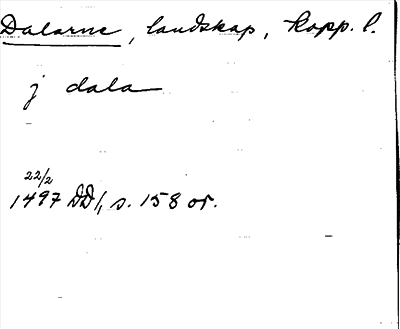 Dalarne, landskap, Kopp. l.
j dala
22/2
1497 DD 1, s. 158 or.